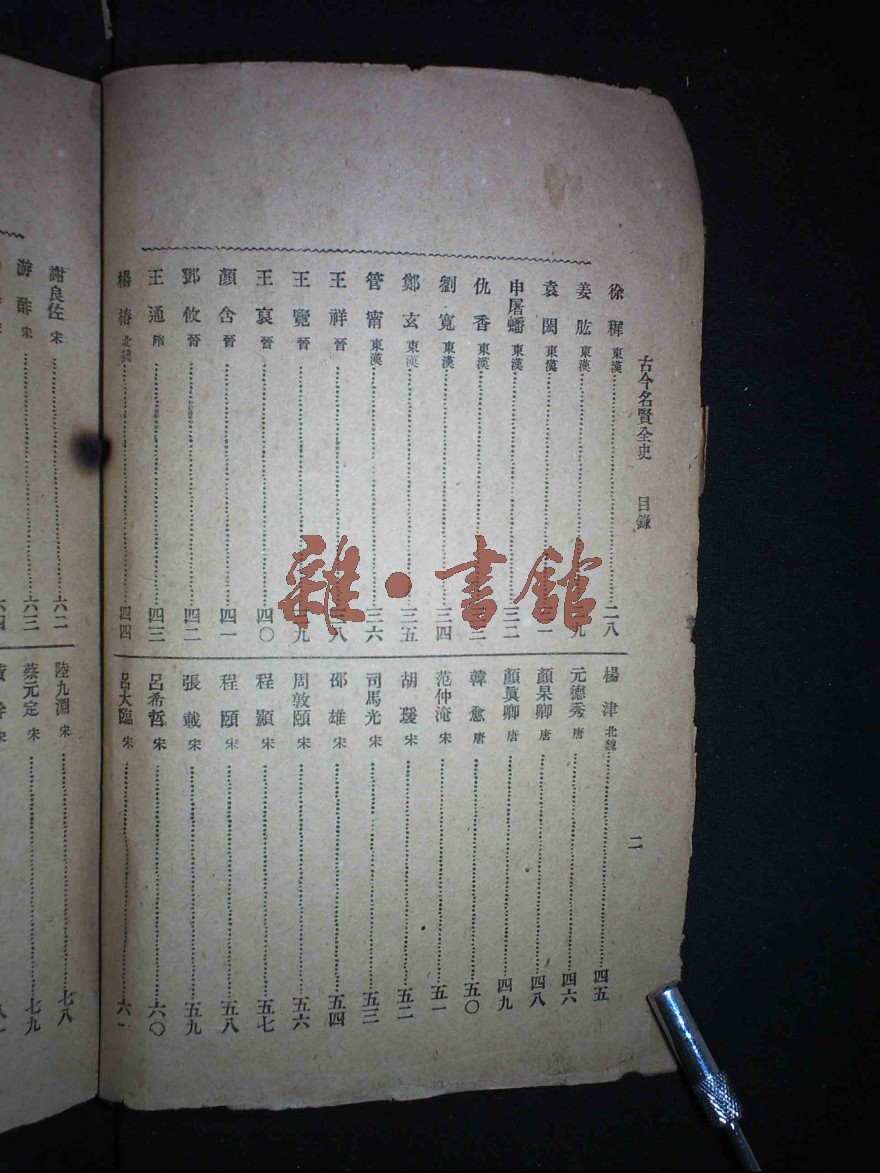 古今名賢全史　目錄
二
徐穉 東漢 二八
姜肱 東漢 九
袁閎 東漢 一
申屠蟠 東漢 三二
仇香 東漢 三
劉寬 東漢 三四
鄭玄 東漢 三五
管甯 東漢 三六
王祥 晉 八
王覽 晉 九
王裒 晉 四〇
顏含 晉 四一
鄧攸 晉 四二
王通 隋 四三
楊椿 北魏 四四
楊津 北魏 四五
元德秀 唐 四六
顏杲卿 唐 四八
顏眞卿 唐 四九
韓愈 唐 五〇
范仲淹 宋 五一
胡瑗 宋 五二
司馬光 宋 五三
邵雄 宋 五四
周敦頤 宋 五六
程顥 宋 五七
程頤 宋 五八
張載 宋 五九
呂希哲 宋 六〇
呂大臨 宋 六一
謝良佐 宋 六二
游酢 宋 六三
六四
陸九淵 宋 七八
蔡元定 宋 七九
黃榦 宋 八一
雜·書館